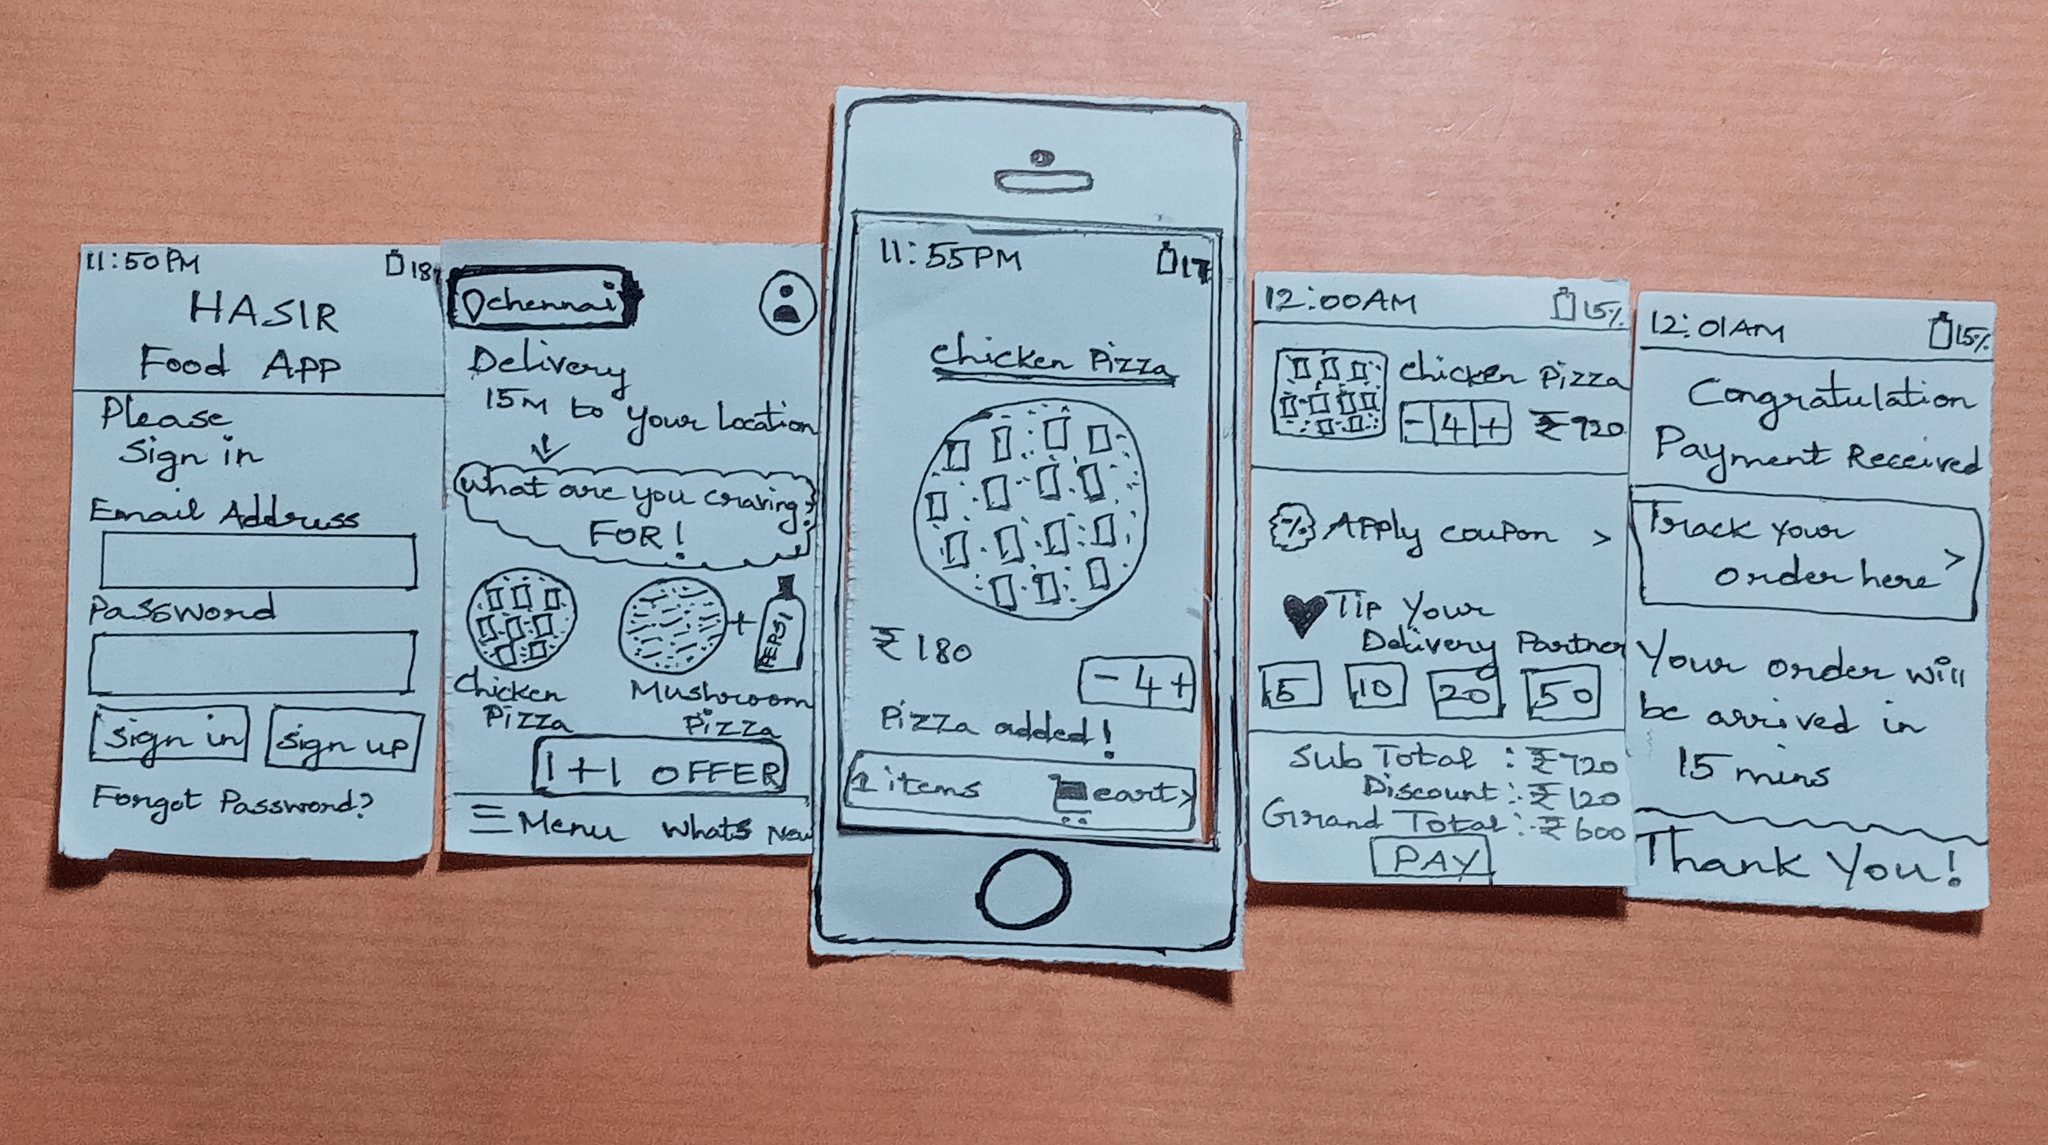 11:50PM 18%
HASIR
Food App
Please
Sign in
Email Address
Password
Sign in Sign up
Forgot Password?
chennai
Delivery
15M to your Location
What are you craving?
FOR!
PEPSI
Chicken Pizza
Mushroom Pizza
1+1 OFFER
Menu Whats New
11:55PM 17
chicken Pizza
₹180
- 4 +
Pizza added!
items cart >
12:00AM 15%
chicken Pizza
- 4 + ₹720
% Apply coupon >
Tip Your
Delivery Partner
5 10 20 50
Sub Total : ₹720
Discount : ₹120
Grand Total : ₹600
PAY
12:01AM 15%
Congratulation
Payment Received
Track your
order here >
Your order will
be arrived in
15 mins
Thank You!